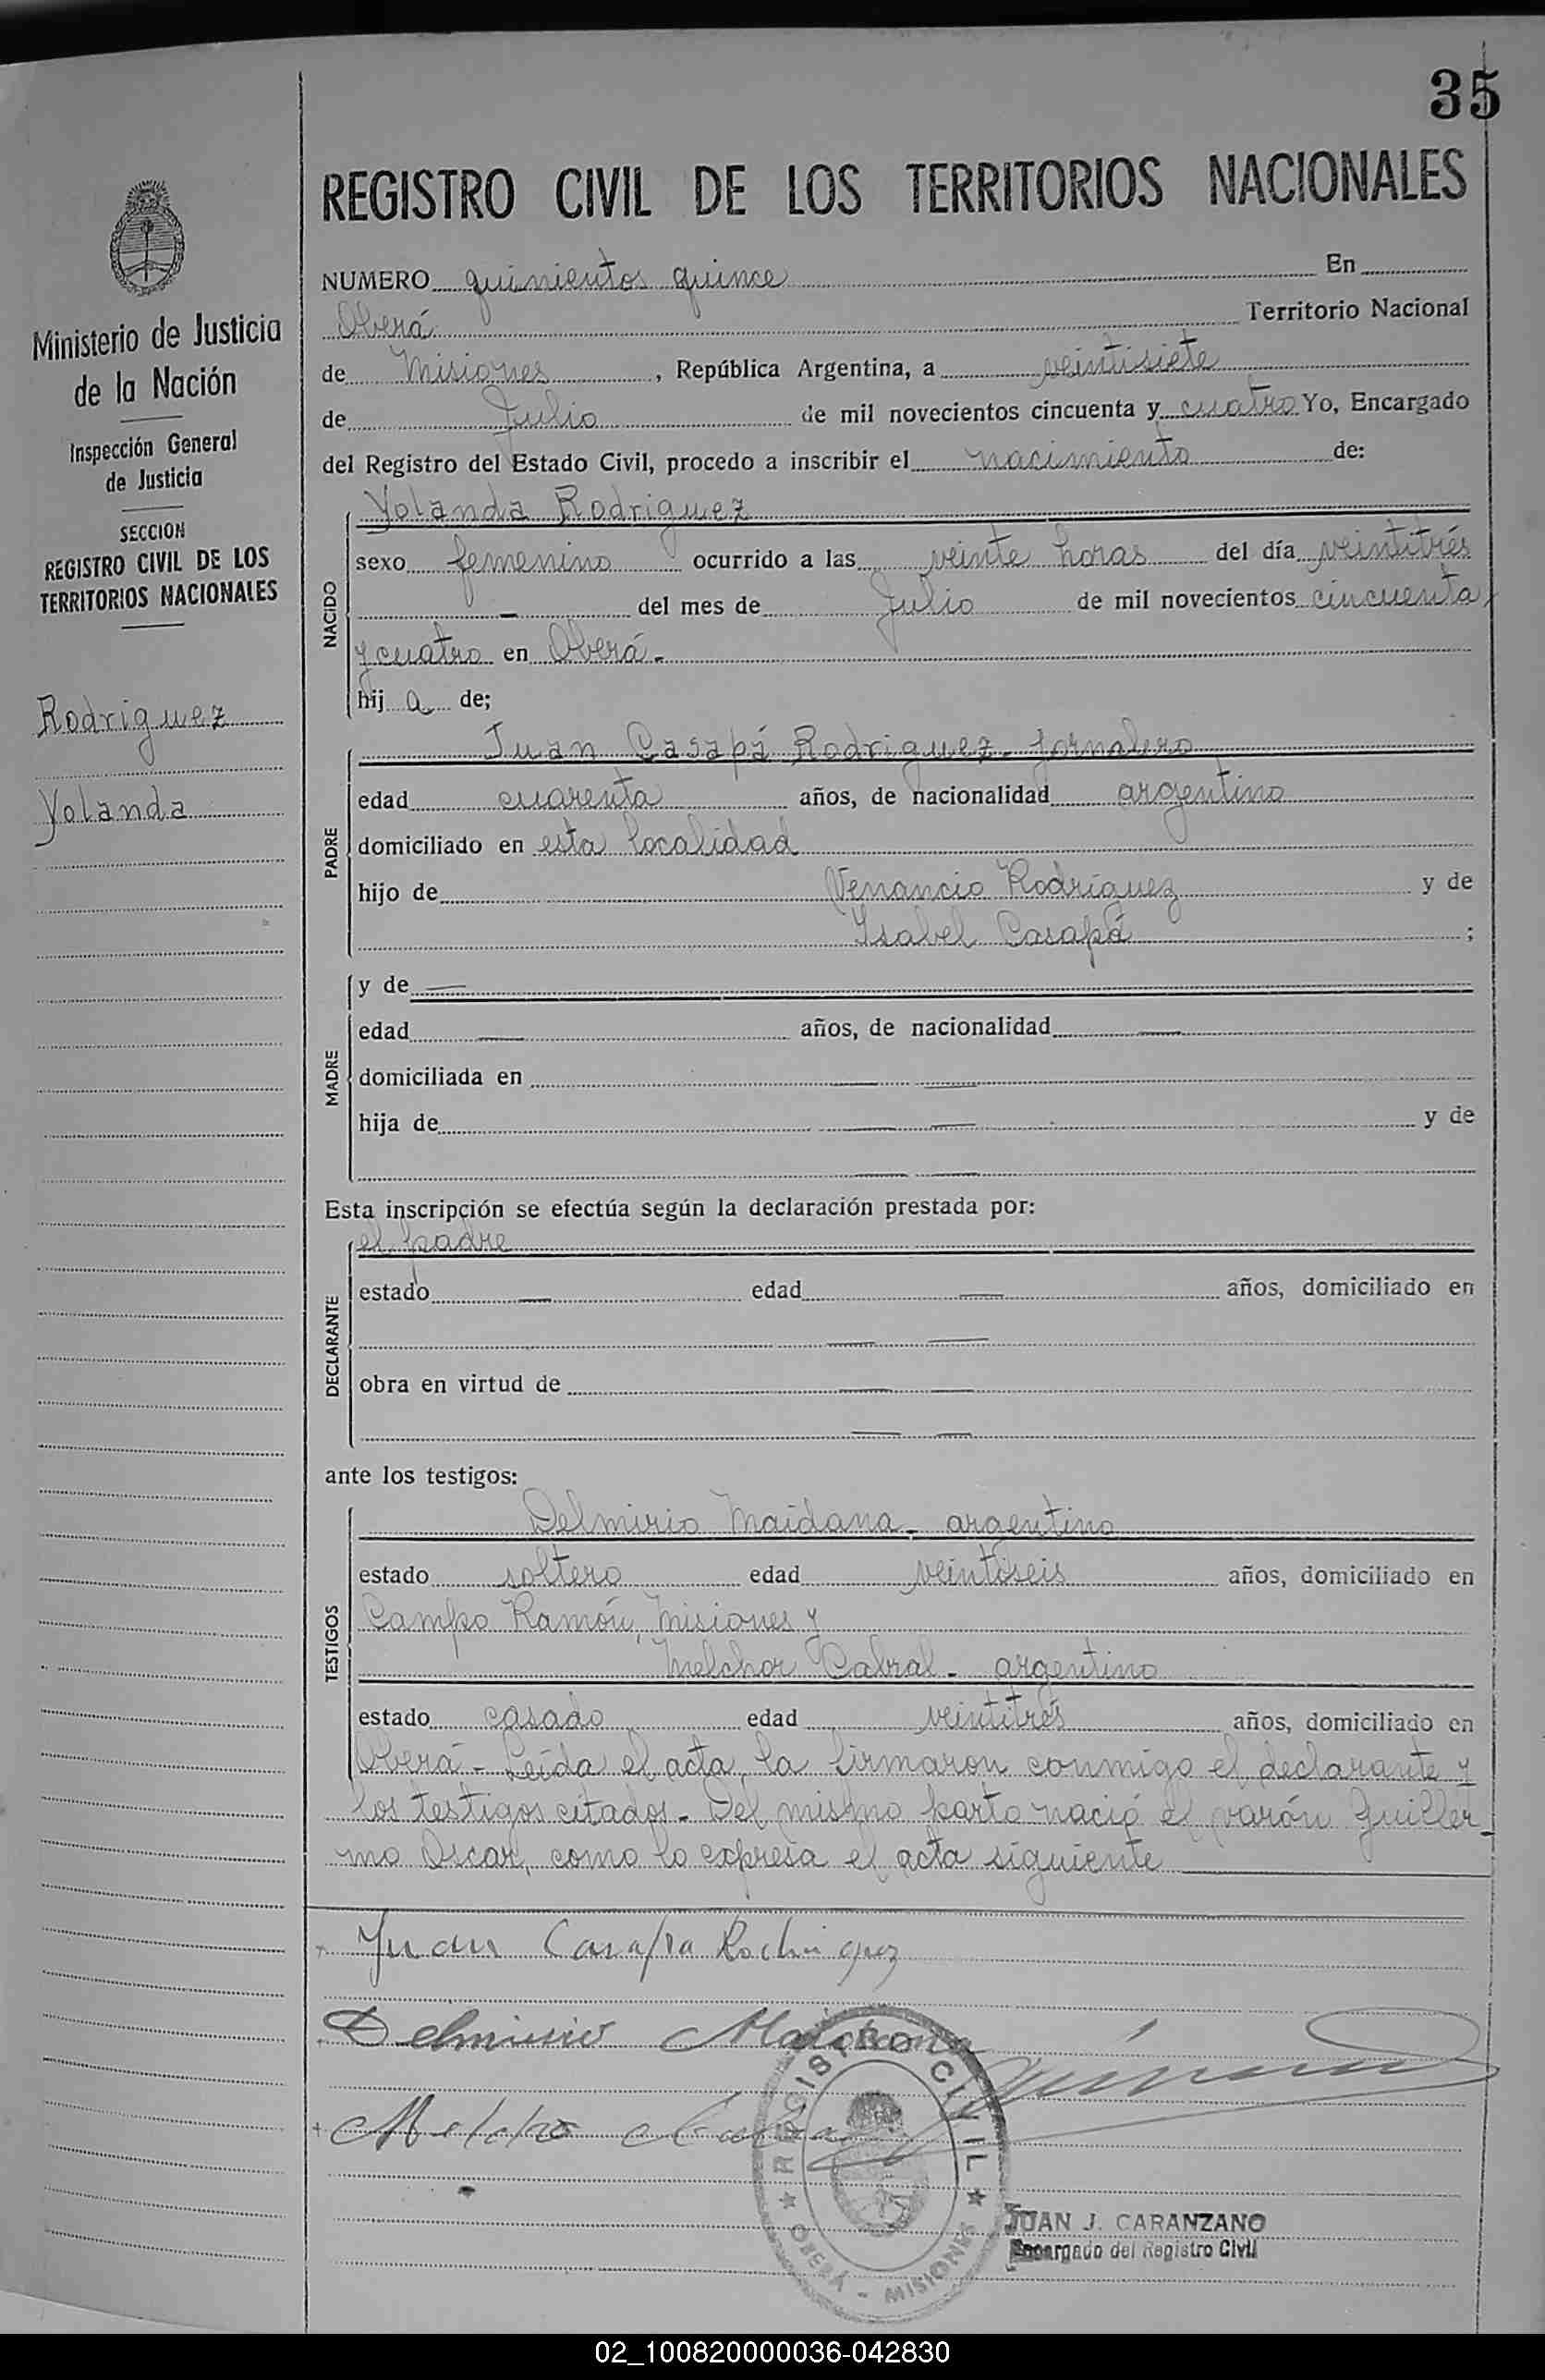 35
REGISTRO CIVIL DE LOS TERRITORIOS NACIONALES
Ministerio de Justicia
de la Nación
Inspección General
de Justicia
SECCION
REGISTRO CIVIL DE LOS
TERRITORIOS NACIONALES
Rodriguez
Yolanda
NUMERO quinientos quince En
Oberá Territorio Nacional
de Misiones, República Argentina, a veintisiete
de Julio de mil novecientos cincuenta y cuatro Yo, Encargado
del Registro del Estado Civil, procedo a inscribir el nacimiento de:
NACIDO
Yolanda Rodriguez
sexo femenino ocurrido a las veinte horas del día veintitrés
— del mes de Julio de mil novecientos cincuenta
y cuatro en Oberá.-
hij a de;
PADRE
Juan Casapá Rodriguez - Jornalero
edad cuarenta años, de nacionalidad argentino
domiciliado en esta localidad
hijo de Venancio Rodríguez y de
Ysabel Casapá ;
MADRE
y de —
edad — años, de nacionalidad —
domiciliada en — —
hija de — — y de
— —
Esta inscripción se efectúa según la declaración prestada por:
DECLARANTE
el padre
estado — edad — años, domiciliado en
— —
obra en virtud de — —
— —
ante los testigos:
TESTIGOS
Delmirio Maidana - argentino
estado soltero edad veintiseis años, domiciliado en
Campo Ramón, Misiones y
Melchor Cabral - argentino
estado casado edad veintitrés años, domiciliado en
Oberá - Leída el acta, la firmaron conmigo el declarante y
los testigos citados - Del mismo parto nació el varón Guiller-
mo Oscar, como lo expresa el acta siguiente
Juan Casapa Rodriguez
Delmirio Maidana
Melcho Cabral
REGISTRO CIVIL
OBERÁ - MISIONES
JUAN J. CARANZANO
Encargado del Registro Civil
02_100820000036-042830